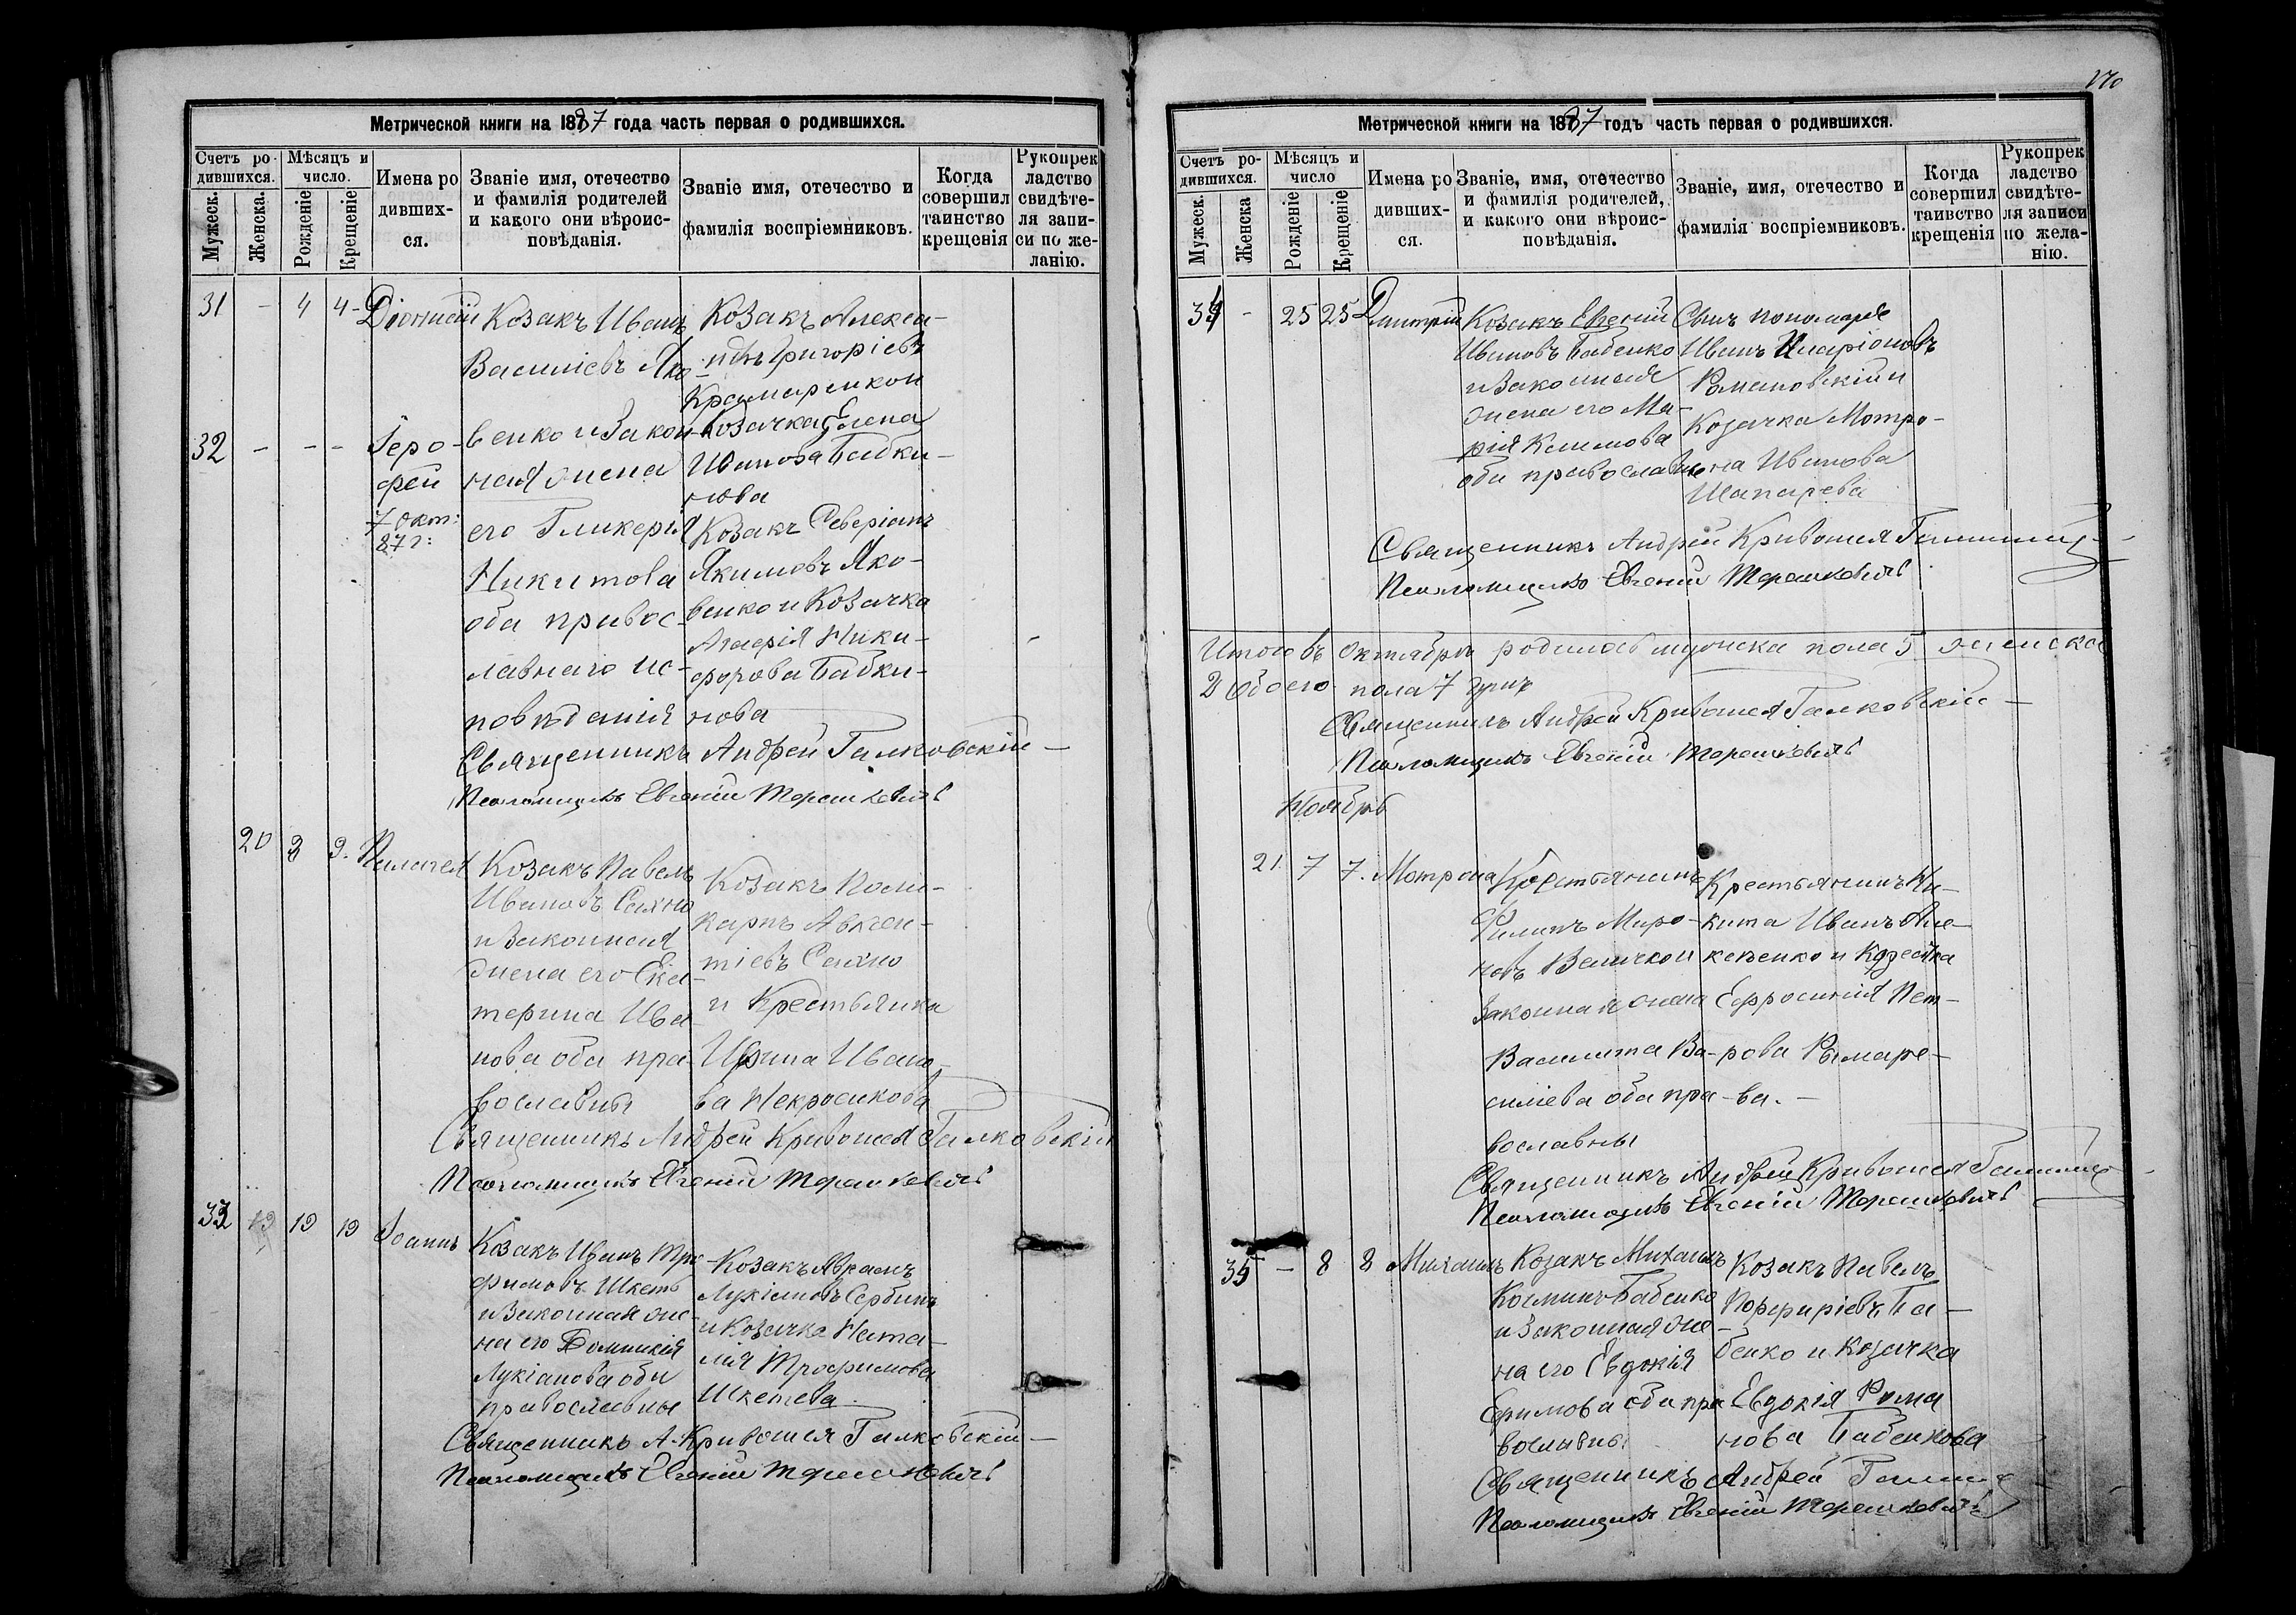 Метрической книги на 1887 года часть первая о родившихся.
Счетъ ро-
дившихся.
Мужеск.
Женска.
Мѣсяцъ и
число.
Рожденіе
Крещеніе
Имена ро
дивших-
ся.
Званіе имя, отечество
и фамилія родителей
и какого они вѣроис-
повѣданія.
Званіе имя, отечество и
фамилія воспріемниковъ.
Когда
совершил
таинство
крещенія
Рукоприк
ладство
свидѣте-
ля запи-
си по же-
ланію.
31 - 4 4- Діонисій
Козакъ Иванъ
Василіевъ Яко-
венко и закон-
ная жена
его Гликерія
Никитова
оба правос-
лавнаго ис-
повѣданія
Козакъ Алекса-
ндръ Григоріевъ
Крамаренко и
Козачка Елена
Иванова Бабки-
нова
32 - - - Іеро-
фей
7 окт:
87 г:
Козакъ Северіанъ
Якимовъ Яко-
венко и Козачка
Агафія Ники-
форова Бабки-
нова
Священникъ Андрей Галковскій
Псаломщикъ Евгеній Терешкевичъ
20 8 9. Пелагея
Козакъ Павелъ
Иванов Сахно
и законная
жена его Ека-
терина Ива-
нова оба пра-
вославны
Козакъ Поли-
карпъ Авксен-
тіевъ Сахно
и Крестьянка
Ирина Ивано-
ва Некрасикова
Священникъ Андрей Кривошея Галковскій
Псаломщикъ Евгеній Терешкевичъ
33 19 19 Іоаннъ
Козакъ Иванъ Тро-
фимовъ Шкеть
и законная же-
на его Домникія
Лукіанова оба
православны
Козакъ Аврамъ
Лукіановъ Сербинъ
и Козачка Ната-
лія Трофимова
Шкетева.
Священникъ А. Кривошея Галковскій
Псаломщикъ Евгеній Терешкевичъ
170
Метрической книги на 1887 годъ часть первая о родившихся.
Счетъ ро-
дившихся.
Мужеск.
Женска
Мѣсяцъ и
число
Рожденіе
Крещеніе
Имена ро
дивших-
ся.
Званіе, имя, отечество
и фамилія родителей,
и какого они вѣроис-
повѣданія.
Званіе, имя, отечество и
фамилія воспріемниковъ.
Когда
совершил
таивство
крещенія
Рукопрек
ладство
свидѣте-
ля записи
по жела-
нію.
34 - 25 25 Дмитрій
Козакъ Евгеній
Ивановъ Бабенко
и законная
жена его Ма-
рія Климова
оба православны
Сынъ пономаря
Иванъ Иларіоновъ
Романовскій и
Козачка Мотро-
на Иванова
Шапарева
Священникъ Андрей Кривошея
Псаломщикъ Евгеній Терешкевичъ
Итого въ Октябрѣ родилось мужска пола 5 женска
2 обоего пола 7 душъ
Священникъ Андрей Кривошея Галковскій
Псаломщикъ Евгеній Терешкевичъ
Ноябрь
21. 7 7. Мотрона
Крестьянинъ
Филипъ Миро-
новъ Величко и
законная жена
Василита Ва-
силіева оба пра-
вославны
Крестьянинъ Ни-
кита Иванъ Але-
ксѣенко и
Ефросинія Пет-
рова Рымаре-
ва.
Священникъ Андрей Кривошея
Псаломщикъ Евгеній Терешкевичъ
35 - 8 8 Михаилъ
Козакъ Михаилъ
Косминъ Бабенко
и законная же-
на его Евдокія
Ефимова оба пра
вославны
Козакъ Павелъ
Порфиріевъ Ба-
бенко и козачка
Евдокія Рома
нова Бабенкова
Священникъ Андрей
Псаломщикъ Евгеній Терешкевичъ